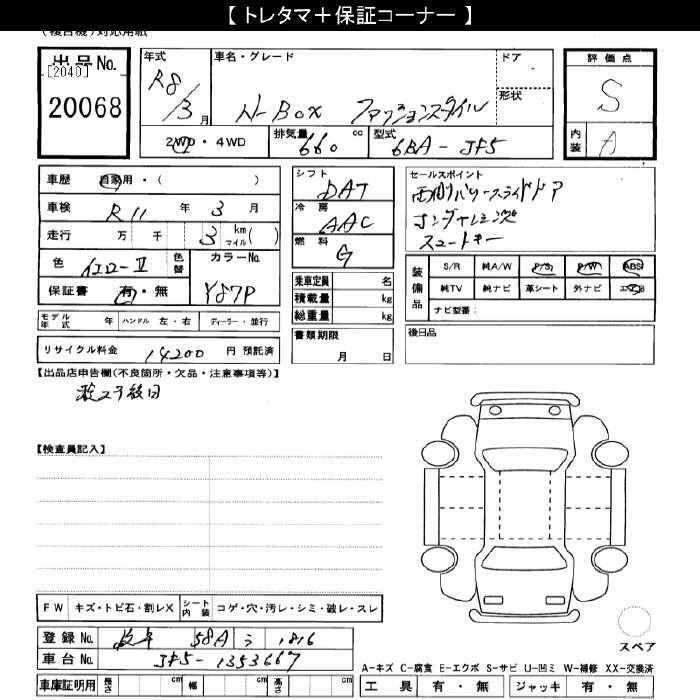 【 トレタマ＋保証コーナー 】
(複合機)対応用紙
出品No.
[2040]
20068
年式 R8/3月
車名・グレード
N-Box ファッションスタイル
ドア
形状
評価点 S
内装 A
2WD・4WD
排気量 660 cc
型式 6BA-JF5
車歴 自家用・( )
車検 R11 年 3 月
走行 万 千 3 km マイル( )
色 イエローⅡ 色替
カラーNo. Y87P
保証書 有・無
モデル年式 年 ハンドル 左・右 ディーラー・並行
リサイクル料金 14200 円 預託済
シフト DAT
冷房 AAC
燃料 G
乗車定員 名
積載量 kg
総重量 kg
書類期限
月 日
セールスポイント
両側パワースライドドア
ホンダセンシング
スマートキー
装備品
S/R 純A/W P/S P/W ABS
純TV 純ナビ 革シート 外ナビ エアB
ナビ型番:
後日品
【出品店申告欄(不良箇所・欠品・注意事項等)】
【検査員記入】
FW キズ・トビ石・割レX シート内装 コゲ・穴・汚レ・シミ・破レ・スレ
登録No. 岐阜 58A う 1816
車台No. JF5-1353667
車庫証明用 長さ cm 幅 cm 高さ cm
スペア
A－キズ C－腐食 E－エクボ S－サビ U－凹ミ W－補修 XX－交換済
工具 有・無 ジャッキ 有・無